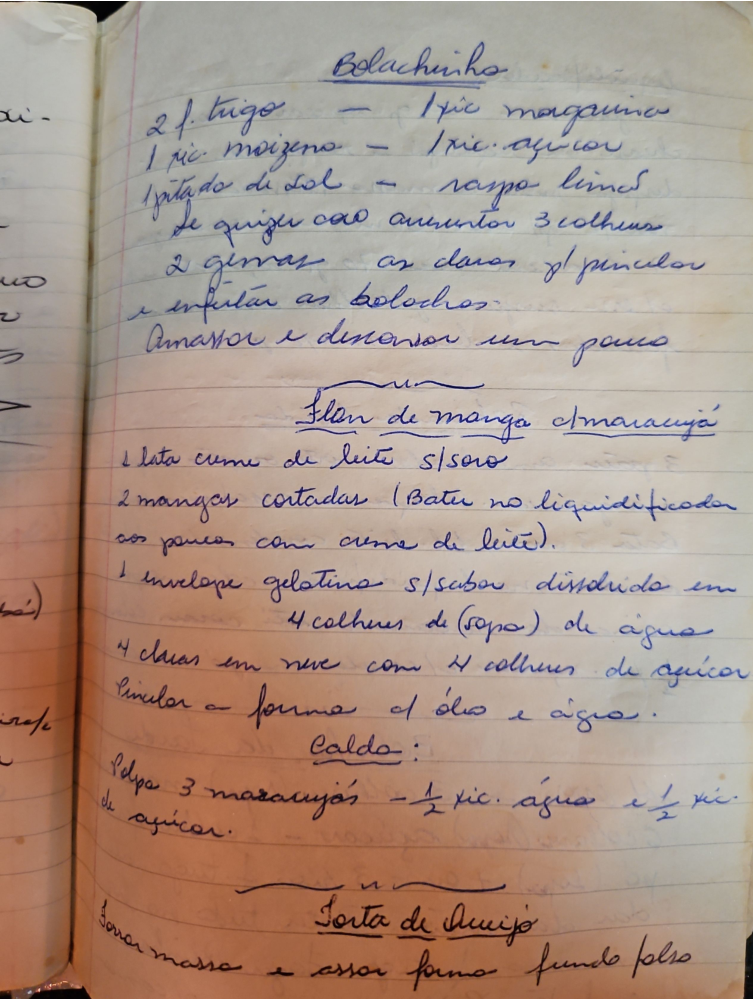 Bolachinha
2 f. trigo — 1 xic margarina
1 xic. maizena — 1 xic. açucar
1 pitada de sal — raspa limão
Se quizer coco acresentar 3 colheres
2 gemas as claras p/ pincelar
e enfeitar as bolachas.
Amassar e descansar um pouco
Flan de manga c/maracujá
1 lata creme de leite s/soro
2 mangas cortadas (Bater no liquidificador
aos poucos com creme de leite).
1 envelope gelatina s/sabor dissolvida em
4 colheres de (sopa) de água
4 claras em neve com 4 colheres de açúcar
Pincelar a forma c/ óleo e água.
Calda:
Polpa 3 maracujás - 1/2 xic. água e 1/2 xic.
de açúcar.
Torta de Queijo
Forrar massa e assar forma fundo falso